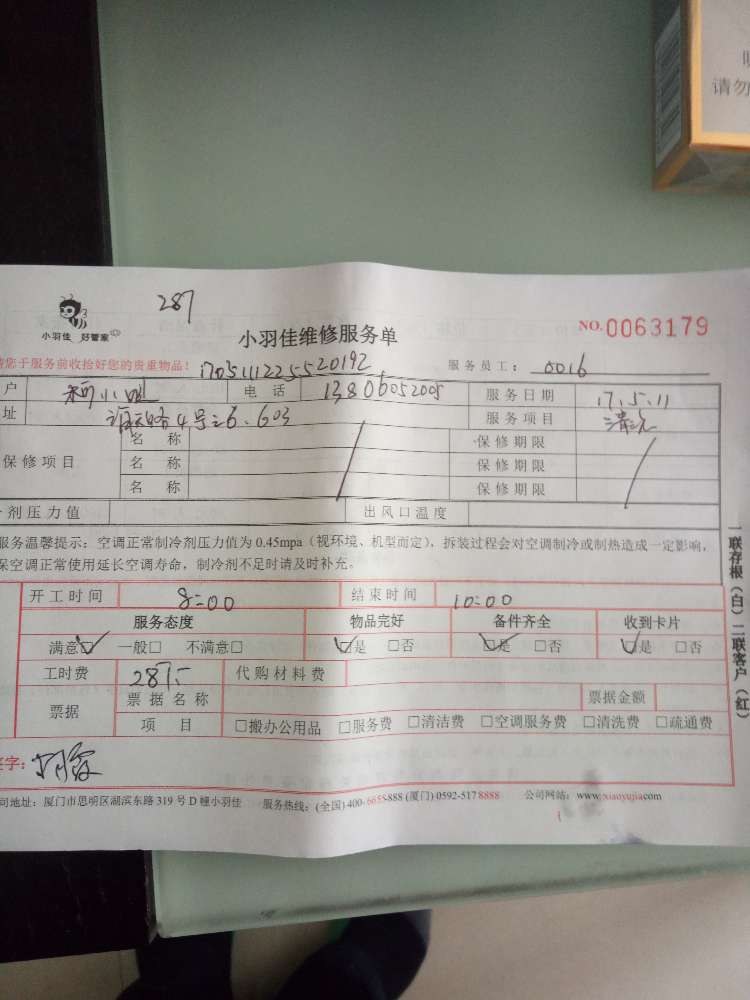 请勿
287
小羽佳 好管家
小羽佳维修服务单
NO.0063179
您于服务前收拾好您的贵重物品!
17051112255520192
服务员工: 0016
户 小姐 电话 13806052005 服务日期 17.5.11
址 4号之6.603 服务项目 清洗
保修项目 名称 保修期限
名称 保修期限
名称 保修期限
剂压力值 出风口温度
服务温馨提示:空调正常制冷剂压力值为 0.45mpa(视环境、机型而定),拆装过程会对空调制冷或制热造成一定影响,
保空调正常使用延长空调寿命,制冷剂不足时请及时补充。
开工时间 8:00 结束时间 10:00
服务态度 物品完好 备件齐全 收到卡片
满意☑ 一般□ 不满意□ ☑是 □否 ☑是 □否 ☑是 □否
工时费 287.- 代购材料费
票据 票据名称 票据金额
项目 □搬办公用品 □服务费 □清洁费 □空调服务费 □清洗费 □疏通费
字:
司地址:厦门市思明区湖滨东路 319 号 D 幢小羽佳 服务热线:(全国)400-6655888 (厦门)0592-5178888 公司网站:www.xiaoyujia.com
一联存根(白)二联客户(红)